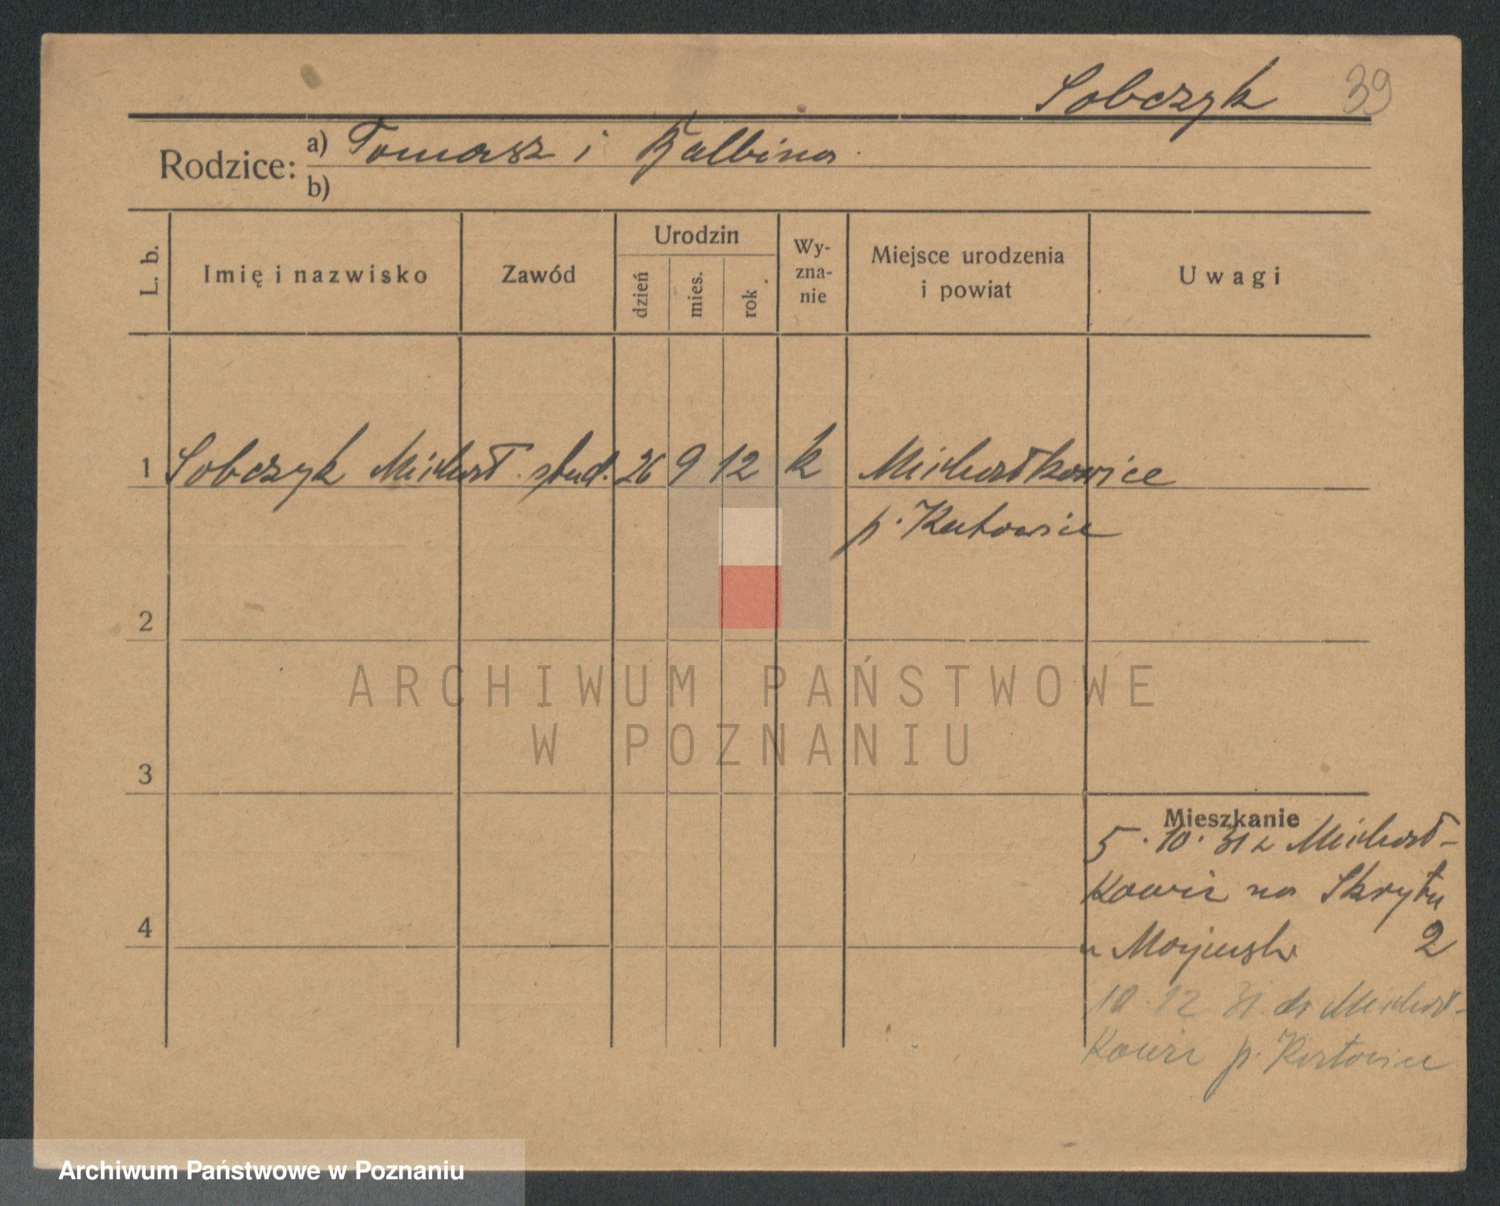 Sobczyk 39
Rodzice: a) Tomasz i Balbina
b)
L. b. Imię i nazwisko Zawód Urodzin dzień mies. rok Wy-zna-nie Miejsce urodzenia i powiat Uwagi
1 Sobczyk Michał stud. 26 9 12 k Michałkowice
p. Katowice
2
ARCHIWUM PAŃSTWOWE
W POZNANIU
3
Mieszkanie
5.10.31 z Michał-
kowic na Skrytą
u 2
4
10.12 31 do Michał-
kowic p. Katowice
Archiwum Państwowe w Poznaniu